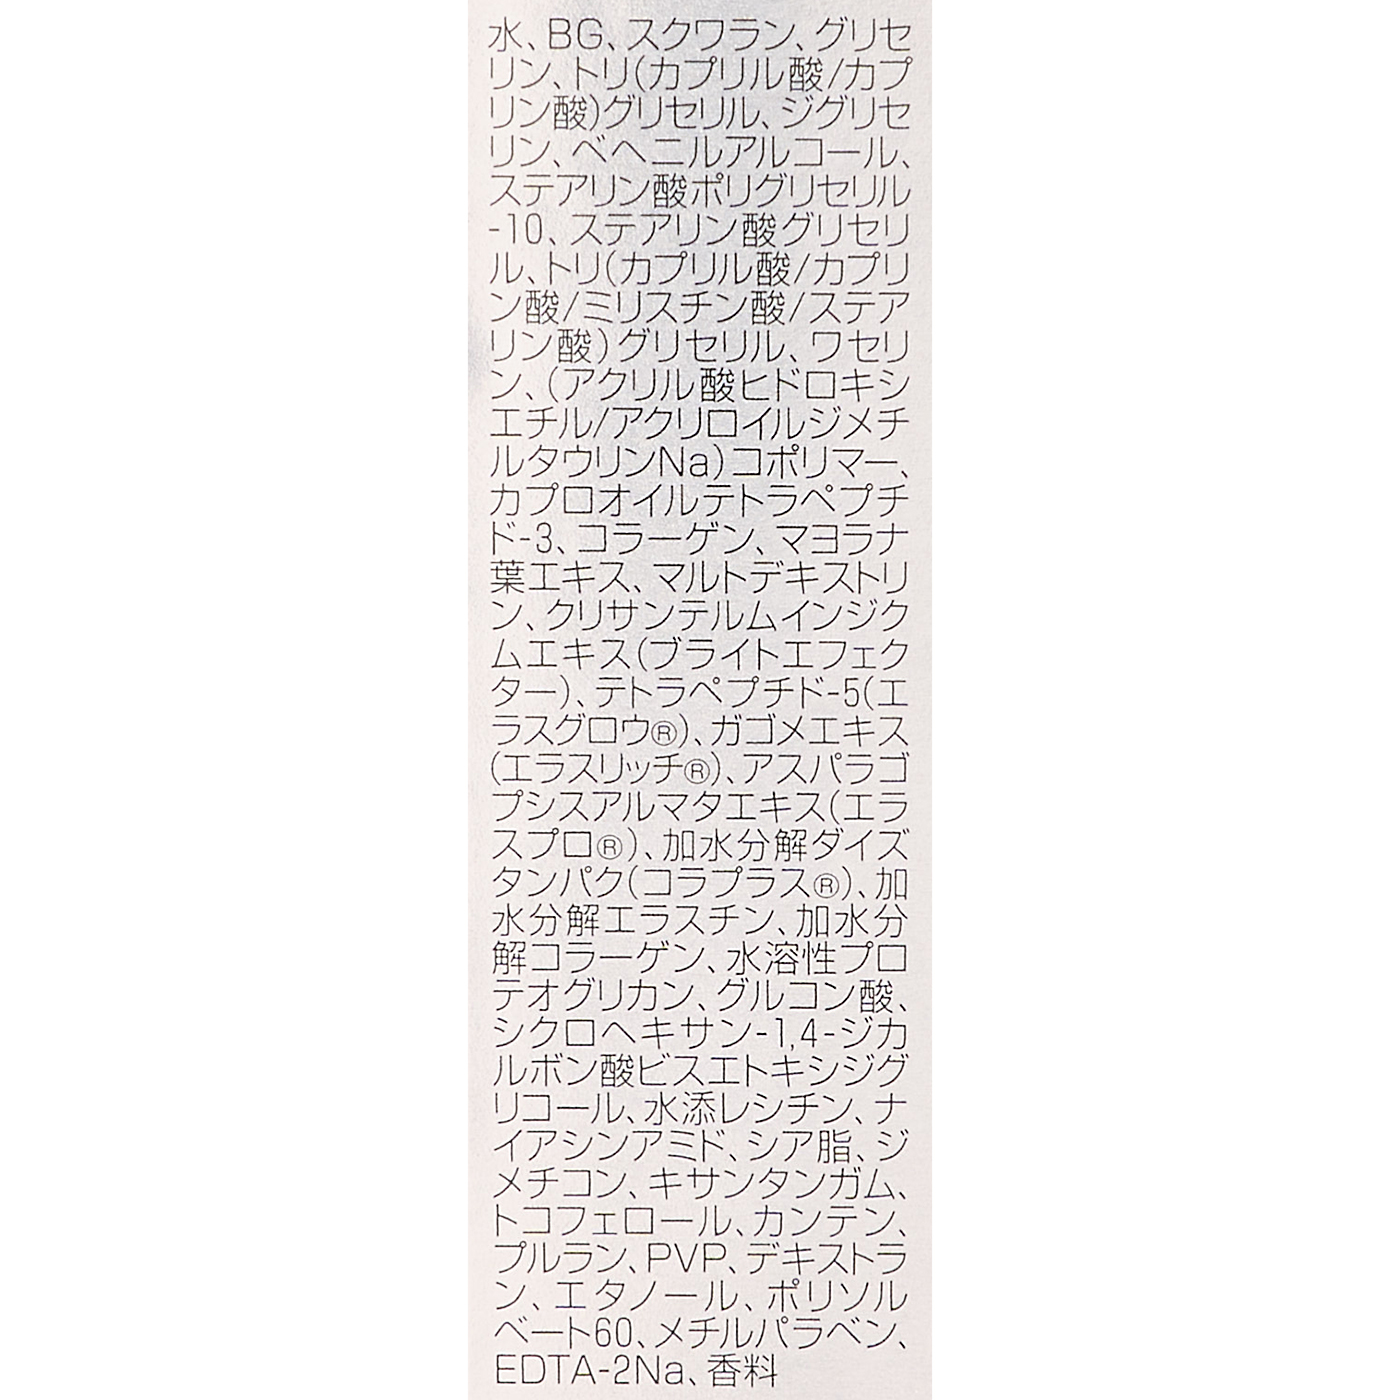 水、BG、スクワラン、グリセ
リン、トリ(カプリル酸/カプ
リン酸)グリセリル、ジグリセ
リン、ベヘニルアルコール、
ステアリン酸ポリグリセリル
-10、ステアリン酸グリセリ
ル、トリ(カプリル酸/カプリ
ン酸/ミリスチン酸/ステア
リン酸)グリセリル、ワセリ
ン、(アクリル酸ヒドロキシ
エチル/アクリロイルジメチ
ルタウリンNa)コポリマー、
カプロオイルテトラペプチ
ド-3、コラーゲン、マヨラナ
葉エキス、マルトデキストリ
ン、クリサンテルムインジク
ムエキス(ブライトエフェク
ター)、テトラペプチド-5(エ
ラスグロウ®)、ガゴメエキス
(エラスリッチ®)、アスパラゴ
プシスアルマタエキス(エラ
スプロ®)、加水分解ダイズ
タンパク(コラプラス®)、加
水分解エラスチン、加水分
解コラーゲン、水溶性プロ
テオグリカン、グルコン酸、
シクロヘキサン-1,4-ジカ
ルボン酸ビスエトキシジグ
リコール、水添レシチン、ナ
イアシンアミド、シア脂、ジ
メチコン、キサンタンガム、
トコフェロール、カンテン、
プルラン、PVP、デキストラ
ン、エタノール、ポリソル
ベート60、メチルパラベン、
EDTA-2Na、香料